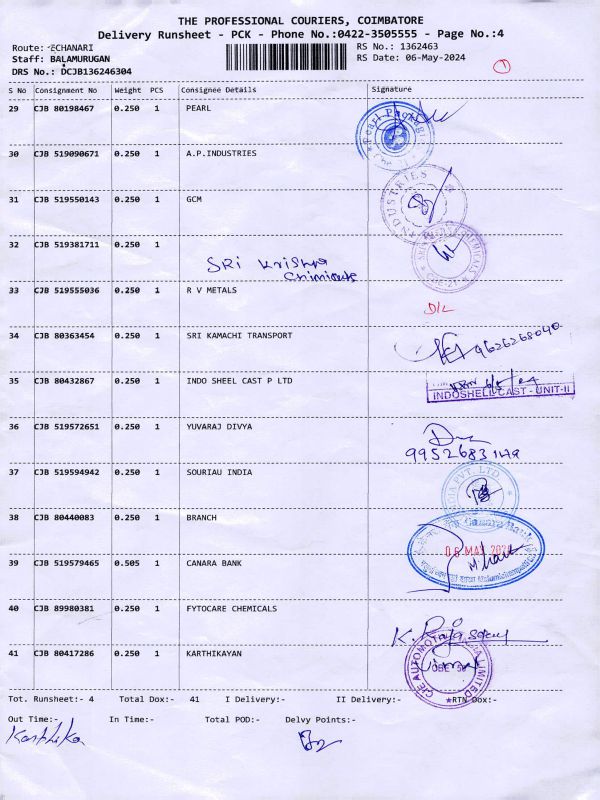 THE PROFESSIONAL COURIERS, COIMBATORE
Delivery Runsheet - PCK - Phone No.:0422-3505555 - Page No.:4
Route: ECHANARI
RS No.: 1362463
Staff: BALAMURUGAN
RS Date: 06-May-2024
DRS No.: DCJB136246304
1
S No Consignment No Weight PCS Consignee Details Signature
29 CJB 80198467 0.250 1 PEARL
30 CJB 519090671 0.250 1 A.P.INDUSTRIES
INDUSTRIES
31 CJB 519550143 0.250 1 GCM
32 CJB 519381711 0.250 1
SRI Krishna
Chimicals
33 CJB 519555036 0.250 1 R V METALS
D/L
34 CJB 80363454 0.250 1 SRI KAMACHI TRANSPORT
9626268040
35 CJB 80432867 0.250 1 INDO SHEEL CAST P LTD
INDOSHELL CAST - UNIT-II
36 CJB 519572651 0.250 1 YUVARAJ DIVYA
37 CJB 519594942 0.250 1 SOURIAU INDIA
PVT. LTD
38 CJB 80440083 0.250 1 BRANCH
Canara Bank
06 MAY
39 CJB 519579465 0.505 1 CANARA BANK
40 CJB 89980381 0.250 1 FYTOCARE CHEMICALS
41 CJB 80417286 0.250 1 KARTHIKAYAN
Tot. Runsheet:- 4 Total Dox:- 41 I Delivery:- II Delivery:- RTN Dox:-
Out Time:- In Time:- Total POD:- Delvy Points:-
Karthika